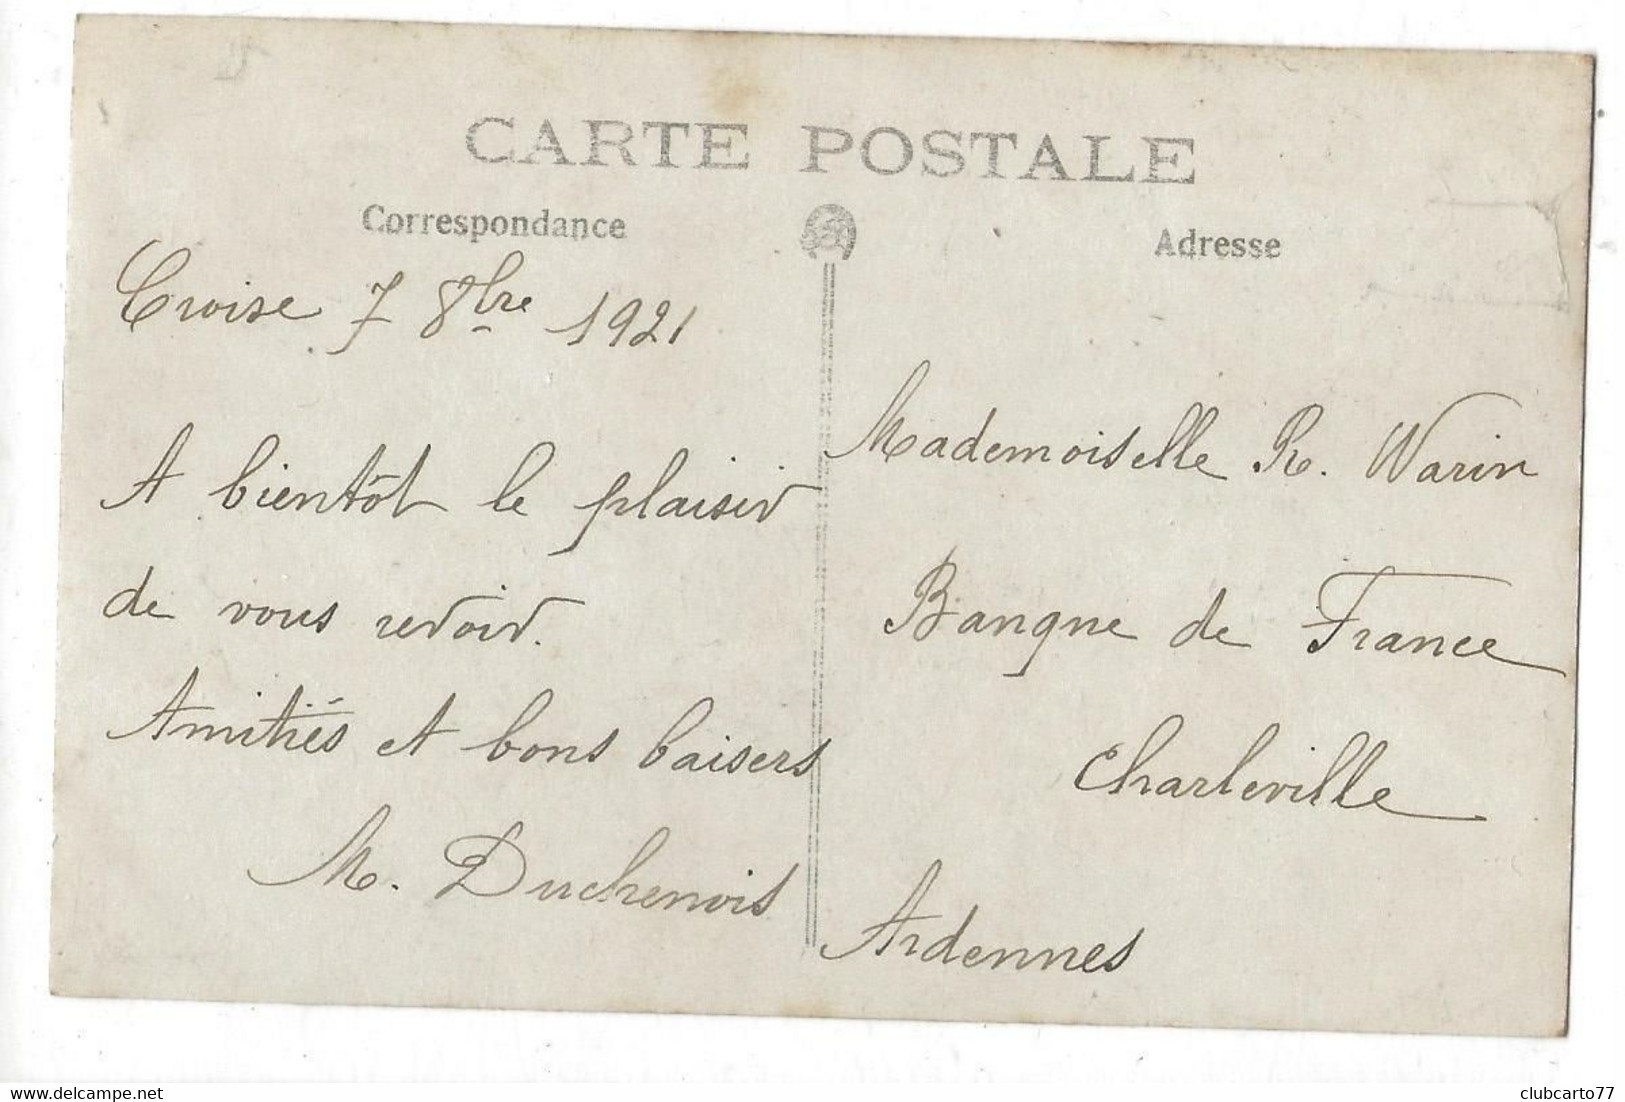 CARTE POSTALE
Correspondance
Adresse
Croise 7 8bre 1921
A bientôt le plaisir
de vous revoir.
Amitiés et bons baisers
M. Duchenois
Mademoiselle R. Warin
Banque de France
Charleville
Ardennes
clubcarto77